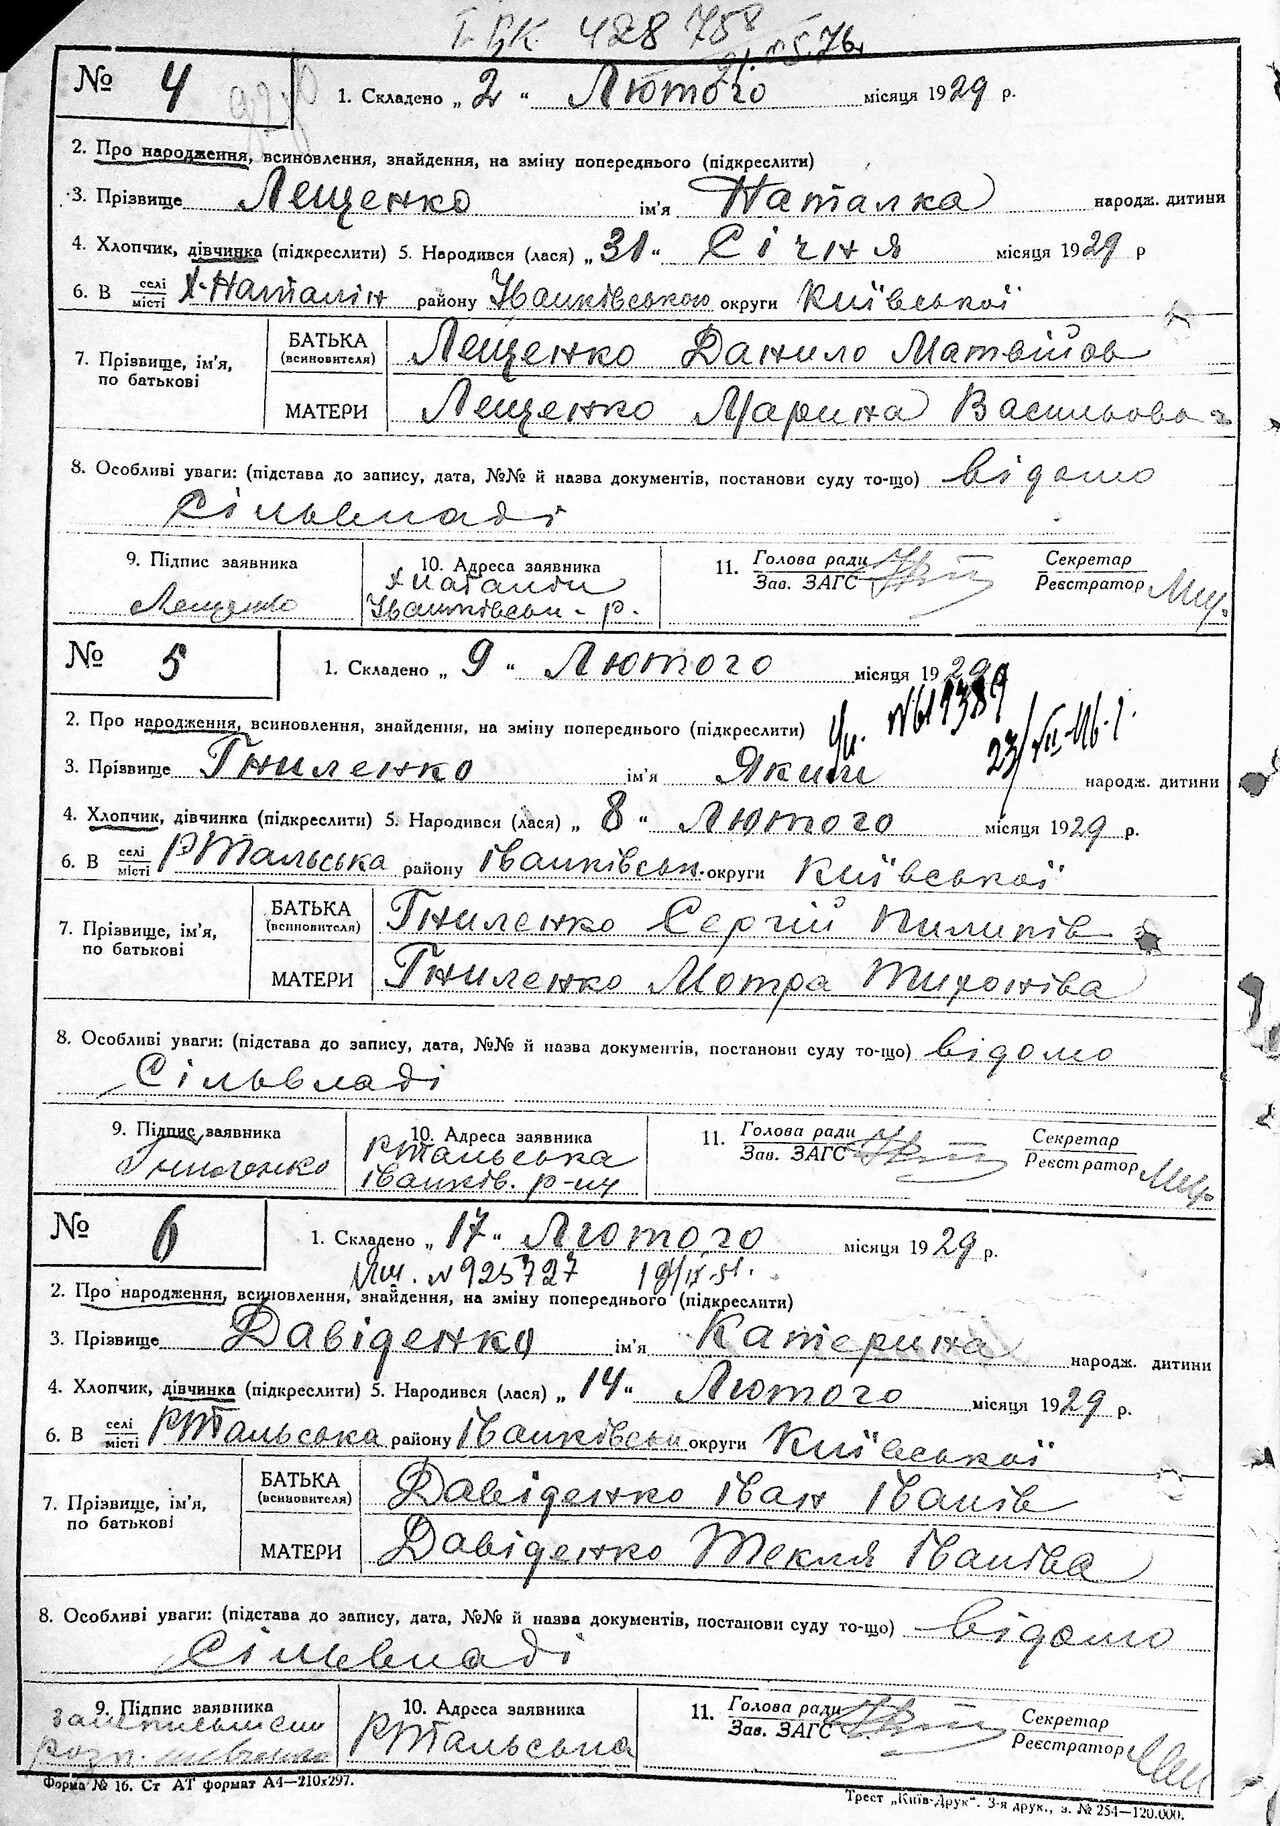 428758
№ 4 1. Складено „ 2 “ Лютого місяця 1929 р.
2. Про народження, всиновлення, знайдення, на зміну попереднього (підкреслити)
3. Прізвище Лещенко ім'я Наталка народж. дитини
4. Хлопчик, дівчинка (підкреслити) 5. Народився (лася) „ 31 “ Січня місяця 1929 р
6. В селі місті Х-Наталін району Іванківського округи Київської
7. Прізвище, ім'я, по батькові
БАТЬКА (всиновителя) Лещенко Данило Матвійов
МАТЕРИ Лещенко Марина Васильова
8. Особливі уваги: (підстава до запису, дата, №№ й назва документів, постанови суду то-що) відомо
Сільвладі
9. Підпис заявника 10. Адреса заявника 11. Голова ради Зав. ЗАГС Секретар Реєстратор
Лещенко Іванківськ-р.
№ 5 1. Складено „ 9 “ Лютого місяця 1929
2. Про народження, всиновлення, знайдення, на зміну попереднього (підкреслити)
3. Прізвище Гниленко ім'я Яким народж. дитини
4. Хлопчик, дівчинка (підкреслити) 5. Народився (лася) „ 8 “ Лютого місяця 1929 р.
6. В селі місті РТальська району Іванківськ. округи Київської
7. Прізвище, ім'я, по батькові
БАТЬКА (всиновителя) Гниленко Сергій Пилипів
МАТЕРИ Гниленко Мотра Тихоніва
8. Особливі уваги: (підстава до запису, дата, №№ й назва документів, постанови суду то-що) відомо
Сільвладі
9. Підпис заявника 10. Адреса заявника 11. Голова ради Зав. ЗАГС Секретар Реєстратор
Гниленко РТальська
Іванків. р-ну
№ 6 1. Складено „ 17 “ Лютого місяця 1929 р.
N 925727
2. Про народження, всиновлення, знайдення, на зміну попереднього (підкреслити)
3. Прізвище Давіденко ім'я Катерина народж. дитини
4. Хлопчик, дівчинка (підкреслити) 5. Народився (лася) „ 14 “ Лютого місяця 1929 р.
6. В селі місті РТальська району Іванківськ округи Київської
7. Прізвище, ім'я, по батькові
БАТЬКА (всиновителя) Давіденко Іван Іванів
МАТЕРИ Давіденко Текля Іваніва
8. Особливі уваги: (підстава до запису, дата, №№ й назва документів, постанови суду то-що) відомо
Сільвладі
9. Підпис заявника 10. Адреса заявника 11. Голова ради Зав. ЗАГС Секретар Реєстратор
РТальська
Форма № 16. Ст АТ формат А4—210х297.
Трест „Київ-Друк“. 3-я друк., з. № 254—120.000.